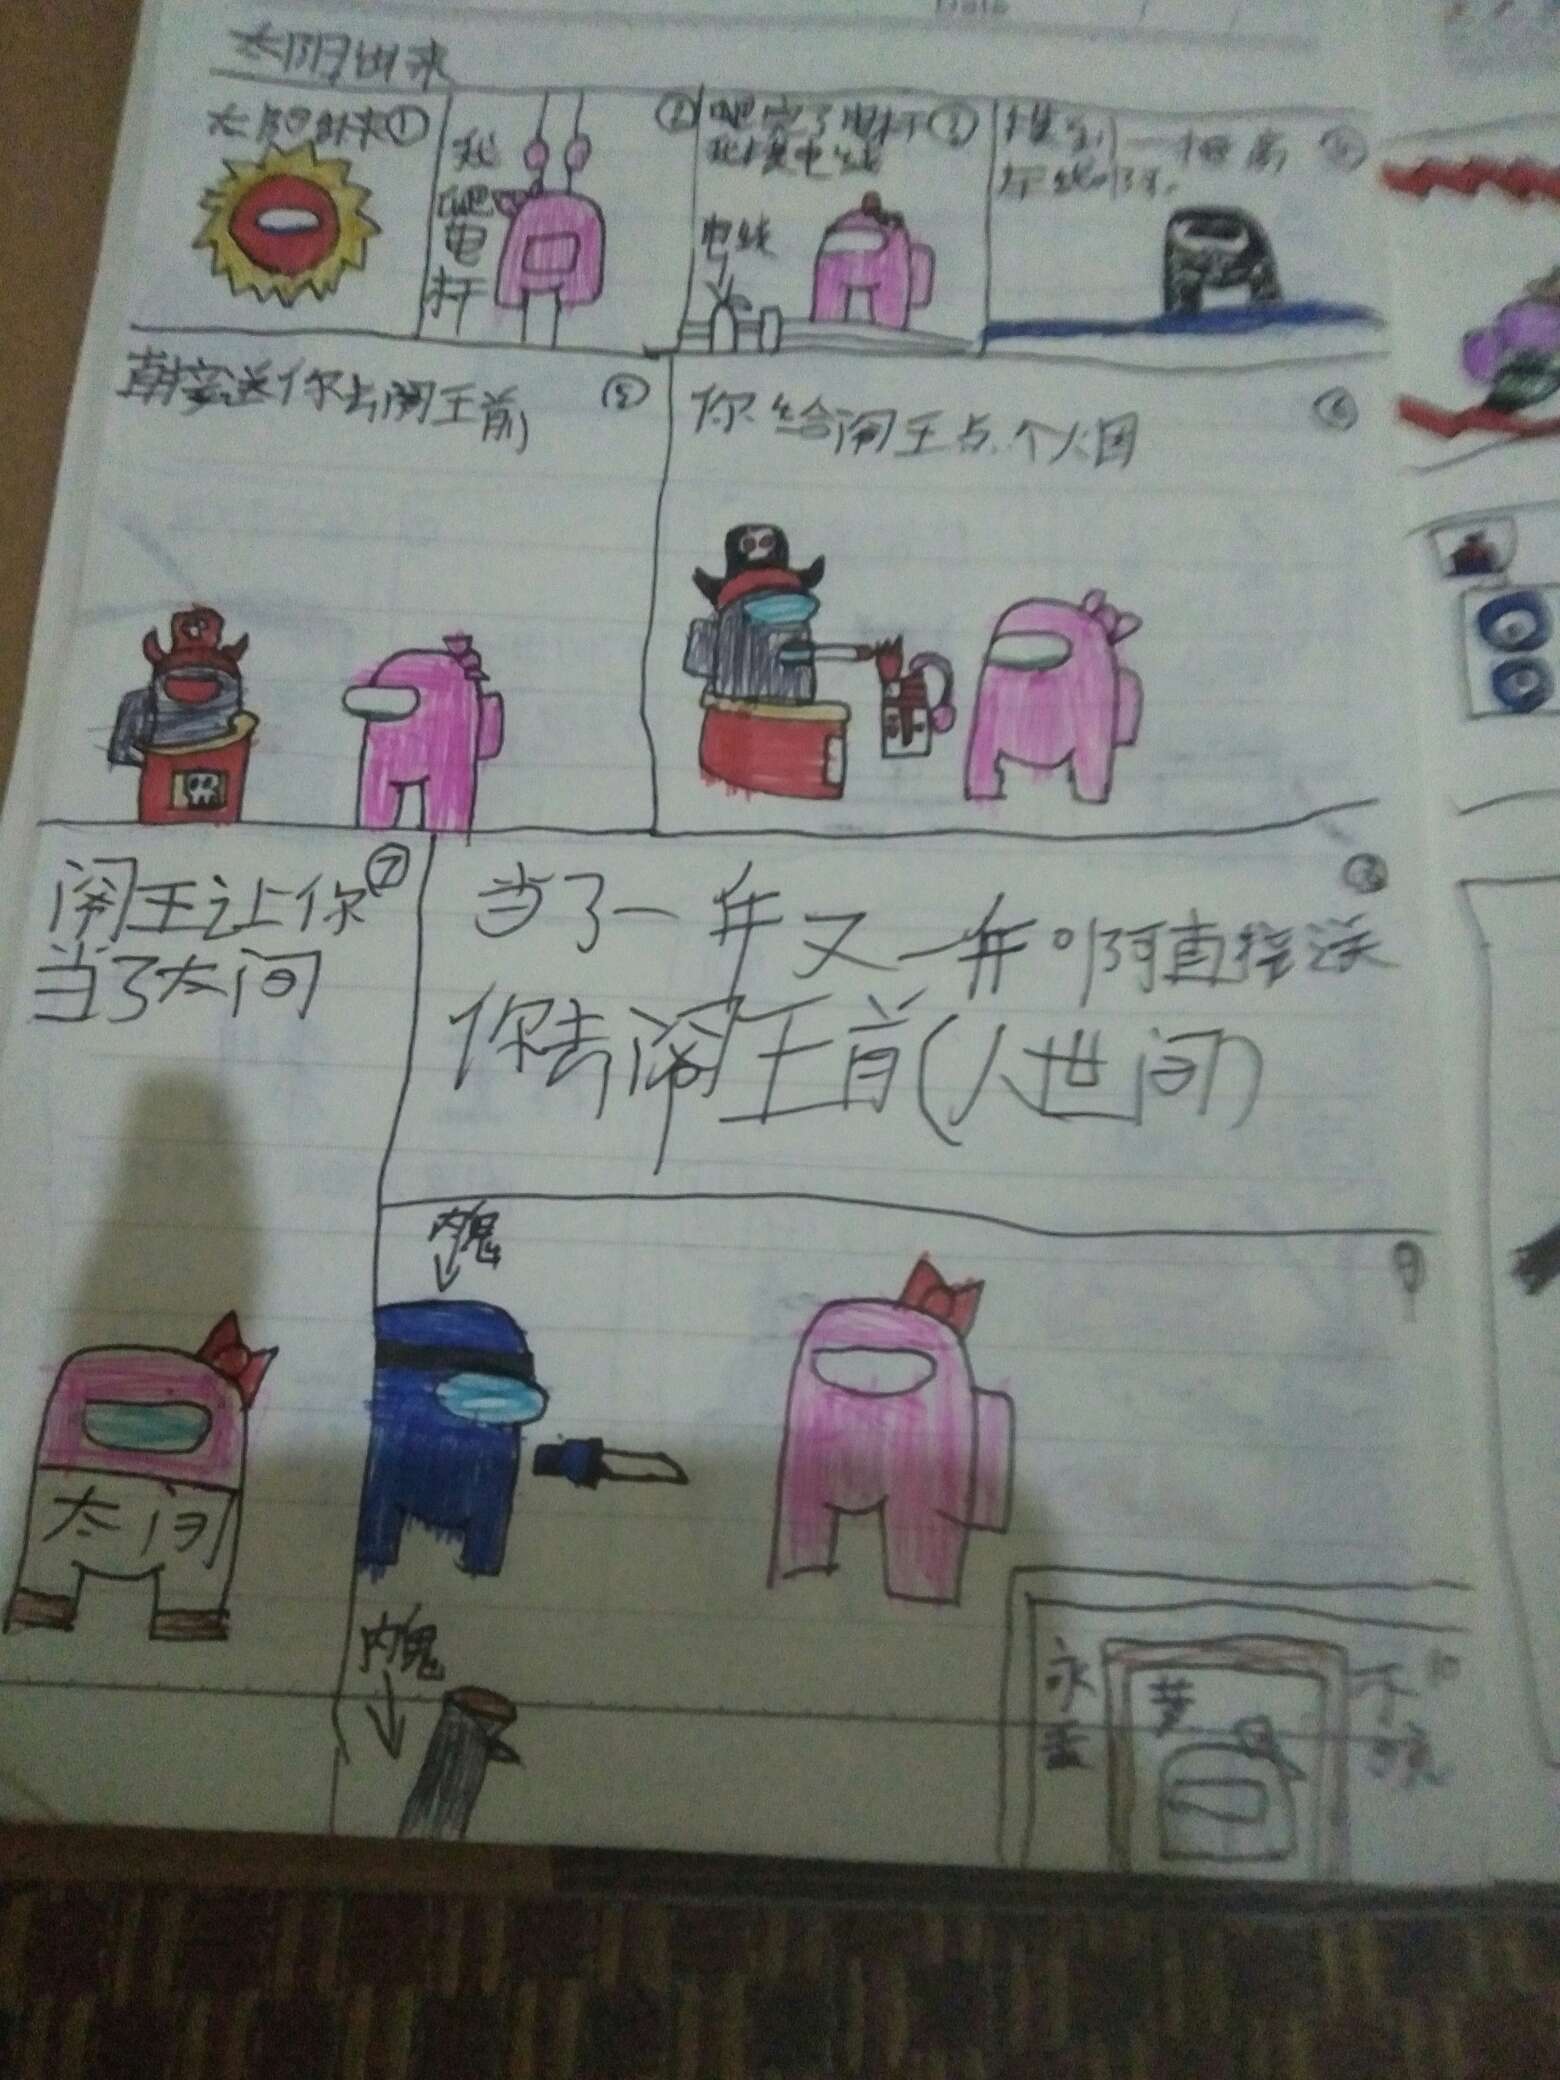 太阴出来
太阳出来①
我
爬
电
杆
②
爬完了电杆③
我摸电线
电线
摸到一根高
⑤
送你去闹王前
⑥
你给闹王点个火因
⑦
闹王让你
当了太间
当了一年又一年啊直接送
你去闹王前(人世间)
内鬼
9
太间
内鬼
永
梦
不